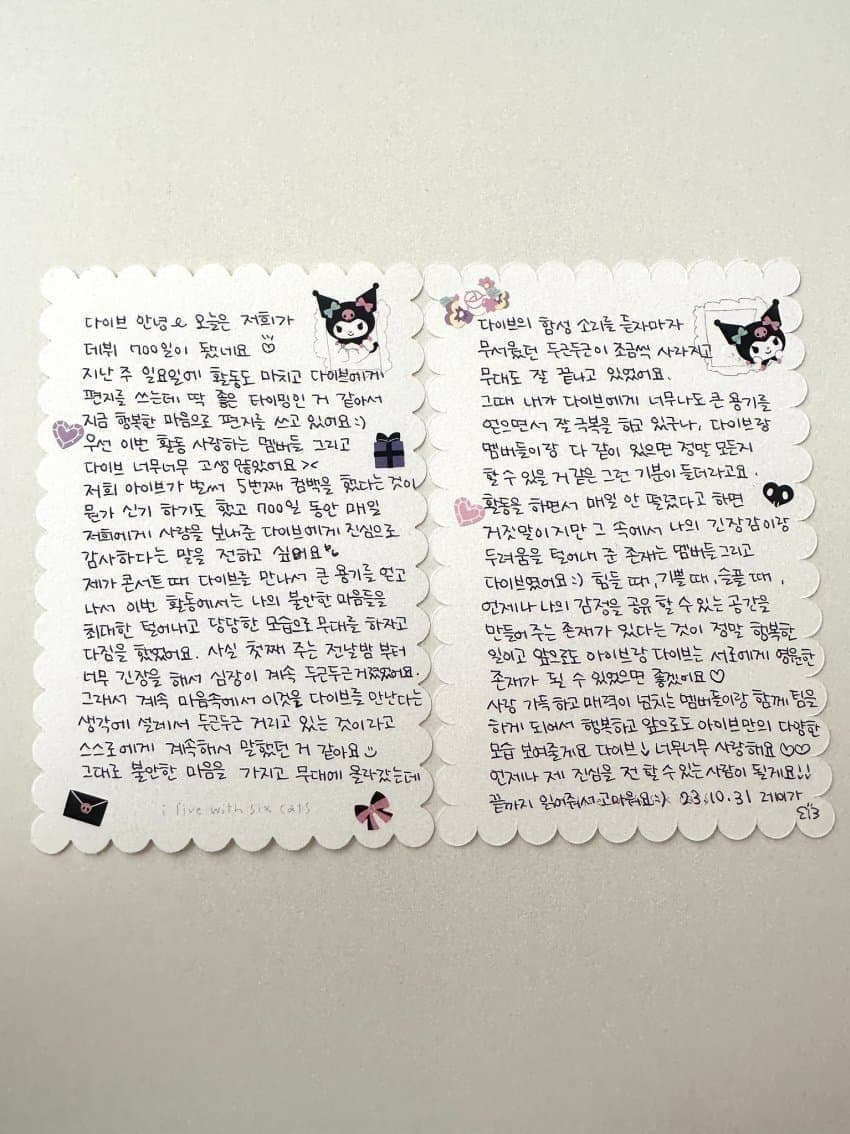 다이브 안녕 오늘은 저희가
데뷔 700일이 됐네요
지난 주 일요일에 활동도 마치고 다이브에게
편지를 쓰는데 딱 좋은 타이밍인 거 같아서
지금 행복한 마음으로 편지를 쓰고 있어요 :)
우선 이번 활동 사랑하는 멤버들 그리고
다이브 너무너무 고생 많았어요 ><
저희 아이브가 벌써 5번째 컴백을 했다는 것이
뭔가 신기 하기도 했고 700일 동안 매일
저희에게 사랑을 보내준 다이브에게 진심으로
감사하다는 말을 전하고 싶어요
제가 콘서트 때 다이브를 만나서 큰 용기를 얻고
나서 이번 활동에서는 나의 불안한 마음들을
최대한 털어내고 당당한 모습으로 무대를 하자고
다짐을 했었어요. 사실 첫째 주는 전날밤 부터
너무 긴장을 해서 심장이 계속 두근두근거렸었어요.
그래서 계속 마음속에서 이것을 다이브를 만난다는
생각에 설레서 두근두근 거리고 있는 것이라고
스스로에게 계속해서 말했던 거 같아요
그대로 불안한 마음을 가지고 무대에 올라갔는데
i live with six cats
다이브의 함성 소리를 듣자마자
무서웠던 두근두근이 조금씩 사라지고
무대도 잘 끝나고 있었어요.
그때 내가 다이브에게 너무나도 큰 용기를
얻으면서 잘 극복을 하고 있구나, 다이브랑
멤버들이랑 다 같이 있으면 정말 모든지
할 수 있을 거 같은 그런 기분이 들더라고요.
활동을 하면서 매일 안 떨렸다고 하면
거짓말이지만 그 속에서 나의 긴장감이랑
두려움을 털어내 준 존재는 멤버들 그리고
다이브였어요 :) 힘들 때, 기쁠 때, 슬플 때,
언제나 나의 감정을 공유 할 수 있는 공간을
만들어 주는 존재가 있다는 것이 정말 행복한
일이고 앞으로도 아이브랑 다이브는 서로에게 영원한
존재가 될 수 있었으면 좋겠어요♡
사랑 가득하고 매력이 넘치는 멤버들이랑 함께 팀을
하게 되어서 행복하고 앞으로도 아이브만의 다양한
모습 보여줄게요 다이브 너무너무 사랑해요♡♡
언제나 제 진심을 전 할 수 있는 사람이 될게요!!
끝까지 읽어줘서 고마워요 :) 23.10.31 레이가